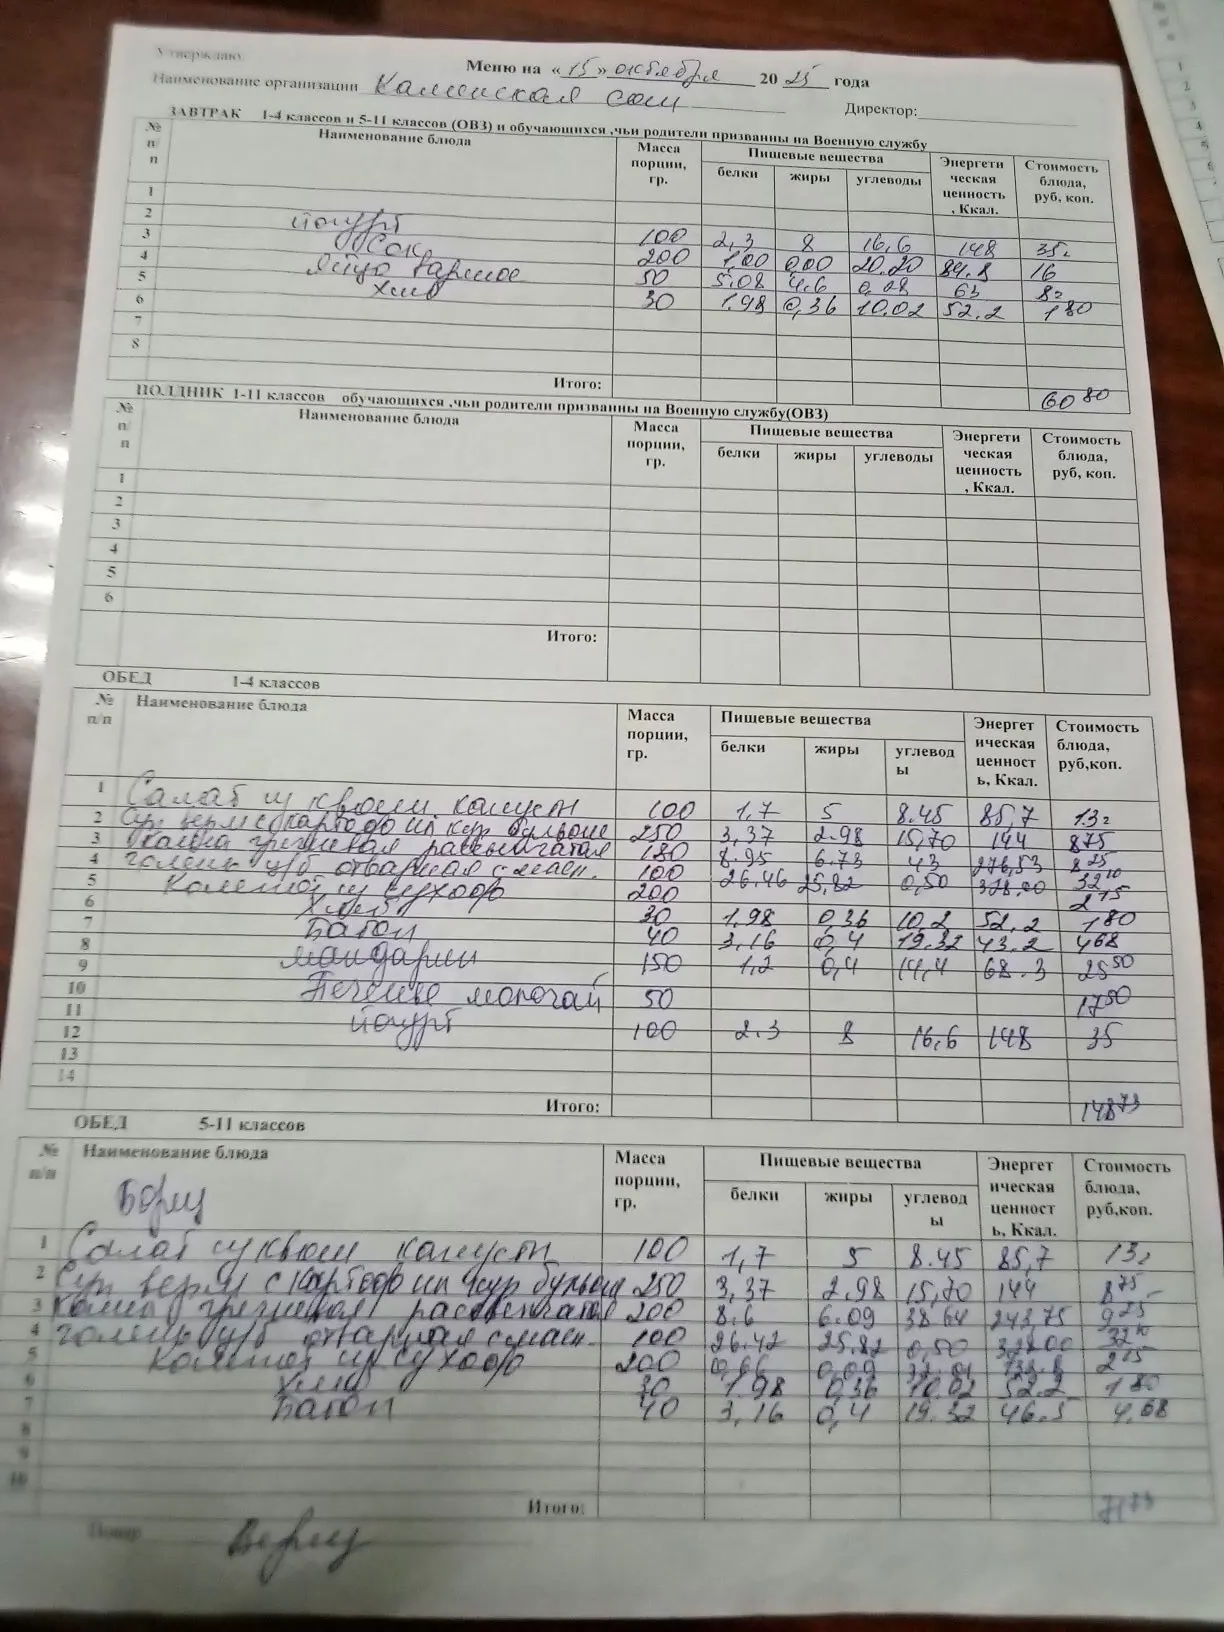 Утверждаю
Меню на «15» октября 2025 года
Наименование организации Каменская сош Директор:
ЗАВТРАК 1-4 классов и 5-11 классов (ОВЗ) и обучающихся ,чьи родители призванны на Военную службу
№ п/п Наименование блюда Масса порции, гр. Пищевые вещества Энергети ческая ценность , Ккал. Стоимость блюда, руб, коп.
белки жиры углеводы
1
2
3 йогурт 100 2,3 8 16,6 148 35
4 Сок 200 1,00 0,00 20.20 84.8 16
5 Яйцо варёное 50 5.08 4.6 0,28 63 8
6 Хлеб 30 1.98 0,36 10.02 52.2 1 80
7
8
Итого: 60 80
ПОЛДНИК 1-11 классов обучающихся ,чьи родители призванны на Военную службу(ОВЗ)
№ п/п Наименование блюда Масса порции, гр. Пищевые вещества Энергети ческая ценность , Ккал. Стоимость блюда, руб, коп.
белки жиры углеводы
1
2
3
4
5
6
Итого:
ОБЕД 1-4 классов
№ п/п Наименование блюда Масса порции, гр. Пищевые вещества Энергет ическая ценност ь, Ккал. Стоимость блюда, руб,коп.
белки жиры углевод ы
1 Салат из квашен капусты 100 1,7 5 8.45 85,7 13
2 Суп верм с картоф на кур бульоне 250 3,37 2.98 15,70 144 8 75
3 Каша гречневая рассыпчатая 180 8.95 6.73 43 276,53 8 25
4 голень ц/б отварная с масл. 100 26.46 25,82 0,50 328.00 32 10
5 Компот из сухофр 200 2 15
6 Хлеб 30 1,98 0,36 10,2 52.2 1 80
7 Батон 40 3,16 0,4 19.32 43.2 4 68
8 мандарин 150 1,2 0,4 14,4 68.3 25 50
9
10 Печенье 50 17 50
11 йогурт 100 2.3 8 16,6 148 35
12
13
14
Итого: 148 73
ОБЕД 5-11 классов
№ п/п Наименование блюда Масса порции, гр. Пищевые вещества Энергет ическая ценност ь, Ккал. Стоимость блюда, руб,коп.
белки жиры углевод ы
1 Салат из квашен капусты 100 1,7 5 8.45 85,7 13
2 Суп верм с картоф на кур бульон 250 3,37 2.98 15,70 144 8 75
3 Каша гречневая рассыпчатая 200 8.6 6.09 38 64 243,75 9 25
4 голень ц/б отварная с масл. 100 26.42 25.82 0,50 328.00 32 10
5 Компот из сухофр 200 0,66 0,09 2 15
6 Хлеб 30 1.98 0,36 10.02 52.2 1 80
7 Батон 40 3,16 0,4 19.32 46.5 4,68
8
9
10
Итого: 71 73
Повар